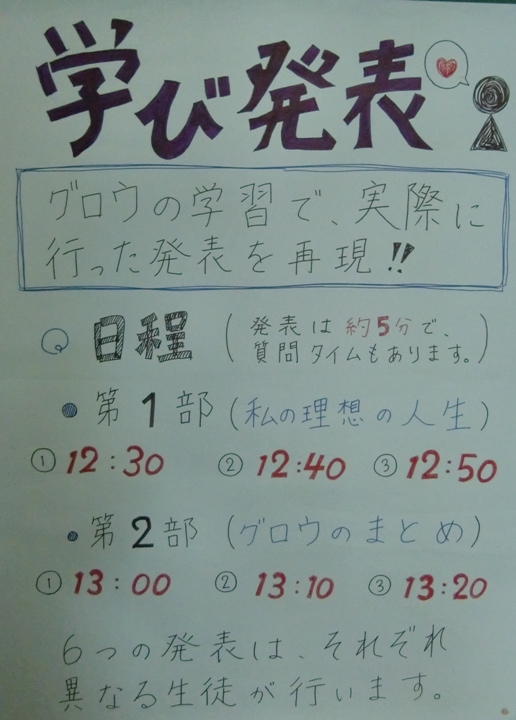 学び発表
グロウの学習で、実際に
行った発表を再現!!
日程
(発表は約5分で、
質問タイムもあります。)
• 第1部 (私の理想の人生)
① 12:30 ② 12:40 ③ 12:50
• 第2部 (グロウのまとめ)
① 13:00 ② 13:10 ③ 13:20
6つの発表は、それぞれ
異なる生徒が行います。